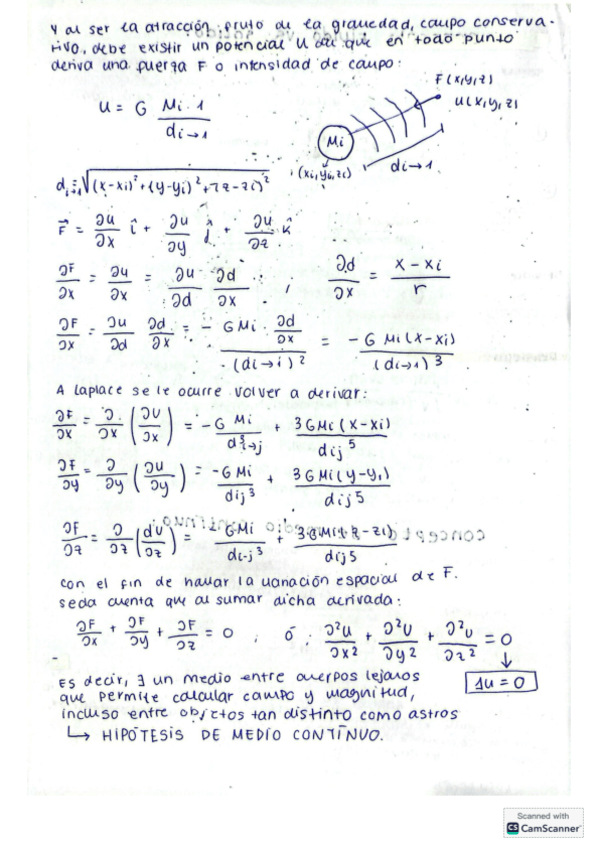 Y al ser la atracción fruto de la gravedad, campo conserva-
tivo, debe existir un potencial U del que en todo punto
deriva una fuerza F o intensidad de campo:
F(x,y,z)
U = G Mi · 1 / di→1
U(x,y,z)
Mi
(xi, yi, zi)
di→1
di→1 = √(x-xi)² + (y-yi)² + (z-zi)²
F⃗ = ∂u/∂x î + ∂u/∂y ĵ + ∂u/∂z k̂
∂F/∂x = ∂u/∂x = ∂u/∂d ∂d/∂x ; ∂d/∂x = x-xi / r
∂F/∂x = ∂u/∂d ∂d/∂x = - GMi · ∂d/∂x / (di→i)² = -G Mi (x-xi) / (di→1)³
A Laplace se le ocurre volver a derivar:
∂F/∂x = ∂/∂x (∂U/∂x) = -G Mi / d³i→j + 3GMi (x-xi) / dij⁵
∂F/∂y = ∂/∂y (∂u/∂y) = -GMi / dij³ + 3GMi (y-yi) / dij⁵
∂F/∂z = ∂/∂z (dU/∂z) = - GMi / di-j³ + 3GMi (z-zi) / dij⁵
con el fin de hallar la variación espacial de F.
se da cuenta que al sumar dicha derivada:
∂F/∂x + ∂F/∂y + ∂F/∂z = 0 , ó : ∂²U/∂x² + ∂²U/∂y² + ∂²U/∂z² = 0
Δu = 0
Es decir, ∃ un medio entre cuerpos lejanos
que permite calcular campo y magnitud,
incluso entre objetos tan distinto como astros
↳ HIPÓTESIS DE MEDIO CONTINUO.
Scanned with
CS CamScanner